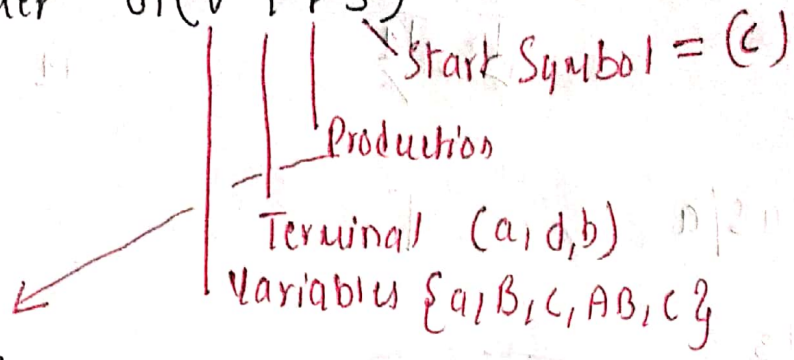 G(V T P S)
Start Symbol = (C)
Production
Terminal (a, d, b)
Variables {a, B, C, AB, C}